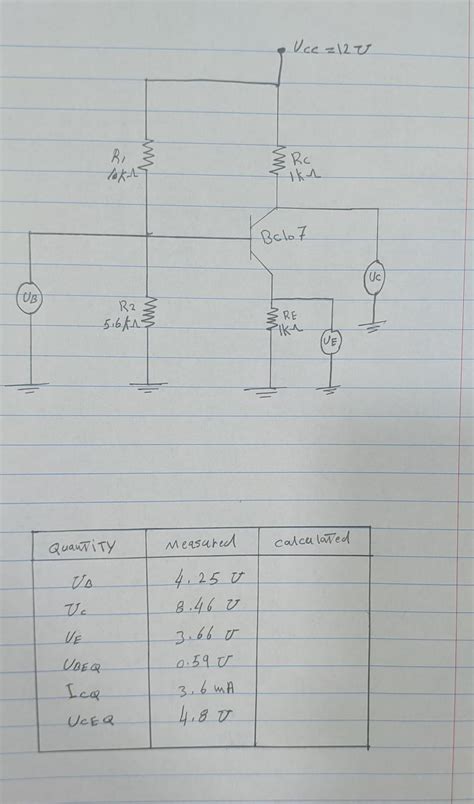 Vcc = 12V
R1
10kΩ
Rc
1kΩ
Bc107
Vc
VB
R2
5.6kΩ
RE
1kΩ
VE
Quantity Measured Calculated
VB 4.25 V
Vc 8.46 V
VE 3.66 V
VBEQ 0.59 V
IcQ 3.6 mA
VCEQ 4.8 V